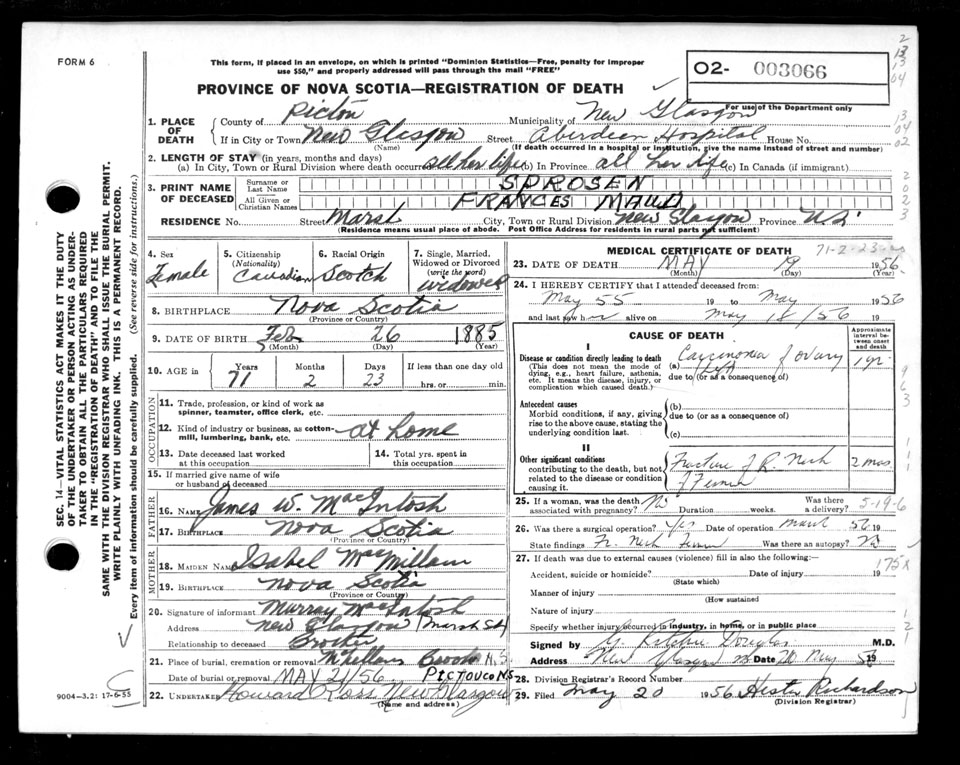 FORM 6
This form, if placed in an envelope, on which is printed "Dominion Statistics—Free, penalty for improper
use $50," and properly addressed will pass through the mail "FREE"
02- 003066
For use of the Department only
PROVINCE OF NOVA SCOTIA—REGISTRATION OF DEATH
1. PLACE OF DEATH
County of Picton Municipality of New Glasgow
If in City or Town New Glasgow Street Aberdeen Hospital House No.
(Name) (If death occurred in a hospital or institution, give the name instead of street and number)
2. LENGTH OF STAY (in years, months and days)
(a) In City, Town or Rural Division where death occurred all her life (b) In Province all her life (c) In Canada (if immigrant)
3. PRINT NAME OF DECEASED
Surname or Last Name SPROSEN
All Given or Christian Names FRANCES MAUD
RESIDENCE No. Street Marsh City, Town or Rural Division New Glasgow Province N.S.
(Residence means usual place of abode. Post Office Address for residents in rural parts not sufficient)
4. Sex Female
5. Citizenship (Nationality) Canadian
6. Racial Origin Scotch
7. Single, Married, Widowed or Divorced (write the word) widowed
8. BIRTHPLACE Nova Scotia
(Province or Country)
9. DATE OF BIRTH Feb 26 1885
(Month) (Day) (Year)
10. AGE Years 71 Months 2 Days 23 If less than one day old hrs. or min.
OCCUPATION
11. Trade, profession or kind of work as spinner, teamster, office clerk, etc.
12. Kind of industry or business, as cotton-mill, lumbering, bank, etc. at home
13. Date deceased last worked at this occupation
14. Total yrs. spent in this occupation
15. If married give name of wife or husband of deceased
FATHER
16. NAME James W. MacIntosh
17. BIRTHPLACE Nova Scotia
(Province or Country)
MOTHER
18. MAIDEN NAME Isabel MacMillan
19. BIRTHPLACE Nova Scotia
(Province or Country)
20. Signature of informant Murray MacIntosh
Address New Glasgow (Marsh St)
Relationship to deceased Brother
21. Place of burial, cremation or removal McLellans Brook N.S
Date of burial or removal MAY 21/56 PICTOU CO NS
22. UNDERTAKER Howard Ross New Glasgow
(Name and address)
MEDICAL CERTIFICATE OF DEATH 71-2-23
23. DATE OF DEATH MAY 19 1956
(Month) (Day) (Year)
24. I HEREBY CERTIFY that I attended deceased from
May 55 19 to May 1956
and last saw her alive on May 18/56 19
CAUSE OF DEATH
Approximate interval between onset and death
I
Disease or condition directly leading to death
(This does not mean the mode of dying, e.g., heart failure, asthenia, etc. It means the disease, injury, or complication which caused death.)
(a) Carcinoma of ovary 1 yr.
(left)
due to (or as a consequence of)
Antecedent causes
Morbid conditions, if any, giving rise to the above cause, stating the underlying condition last.
(b)
due to (or as a consequence of)
(c)
II
Other significant conditions
contributing to the death, but not related to the disease or condition causing it.
Fracture of R. Neck 2 mos
of Femur
25. If a woman, was the death associated with pregnancy? No Duration weeks. Was there a delivery? 5-19-6
26. Was there a surgical operation? Yes Date of operation March 56 19
State findings Fr. Neck Femur Was there an autopsy? No
27. If death was due to external causes (violence) fill in also the following:—
Accident, suicide or homicide? Date of injury 19 175X
(State which)
Manner of injury
(How sustained)
Nature of injury
Specify whether injury occurred in industry, in home, or in public place
Signed by G. Ritchie Douglas M.D.
Address New Glasgow NS Date 20 May 56 19
28. Division Registrar's Record Number
29. Filed May 20 1956 Hester Richardson
(Division Registrar)
SEC. 14—VITAL STATISTICS ACT MAKES IT THE DUTY
OF THE UNDERTAKER OR PERSON ACTING AS UNDER-
TAKER TO OBTAIN ALL THE PARTICULARS REQUIRED
IN THE "REGISTRATION OF DEATH" AND TO FILE THE
SAME WITH THE DIVISION REGISTRAR WHO SHALL ISSUE THE BURIAL PERMIT.
WRITE PLAINLY WITH UNFADING INK. THIS IS A PERMANENT RECORD.
Every item of information should be carefully supplied. (See reverse side for instructions.)
9004-3.2: 17-6-55